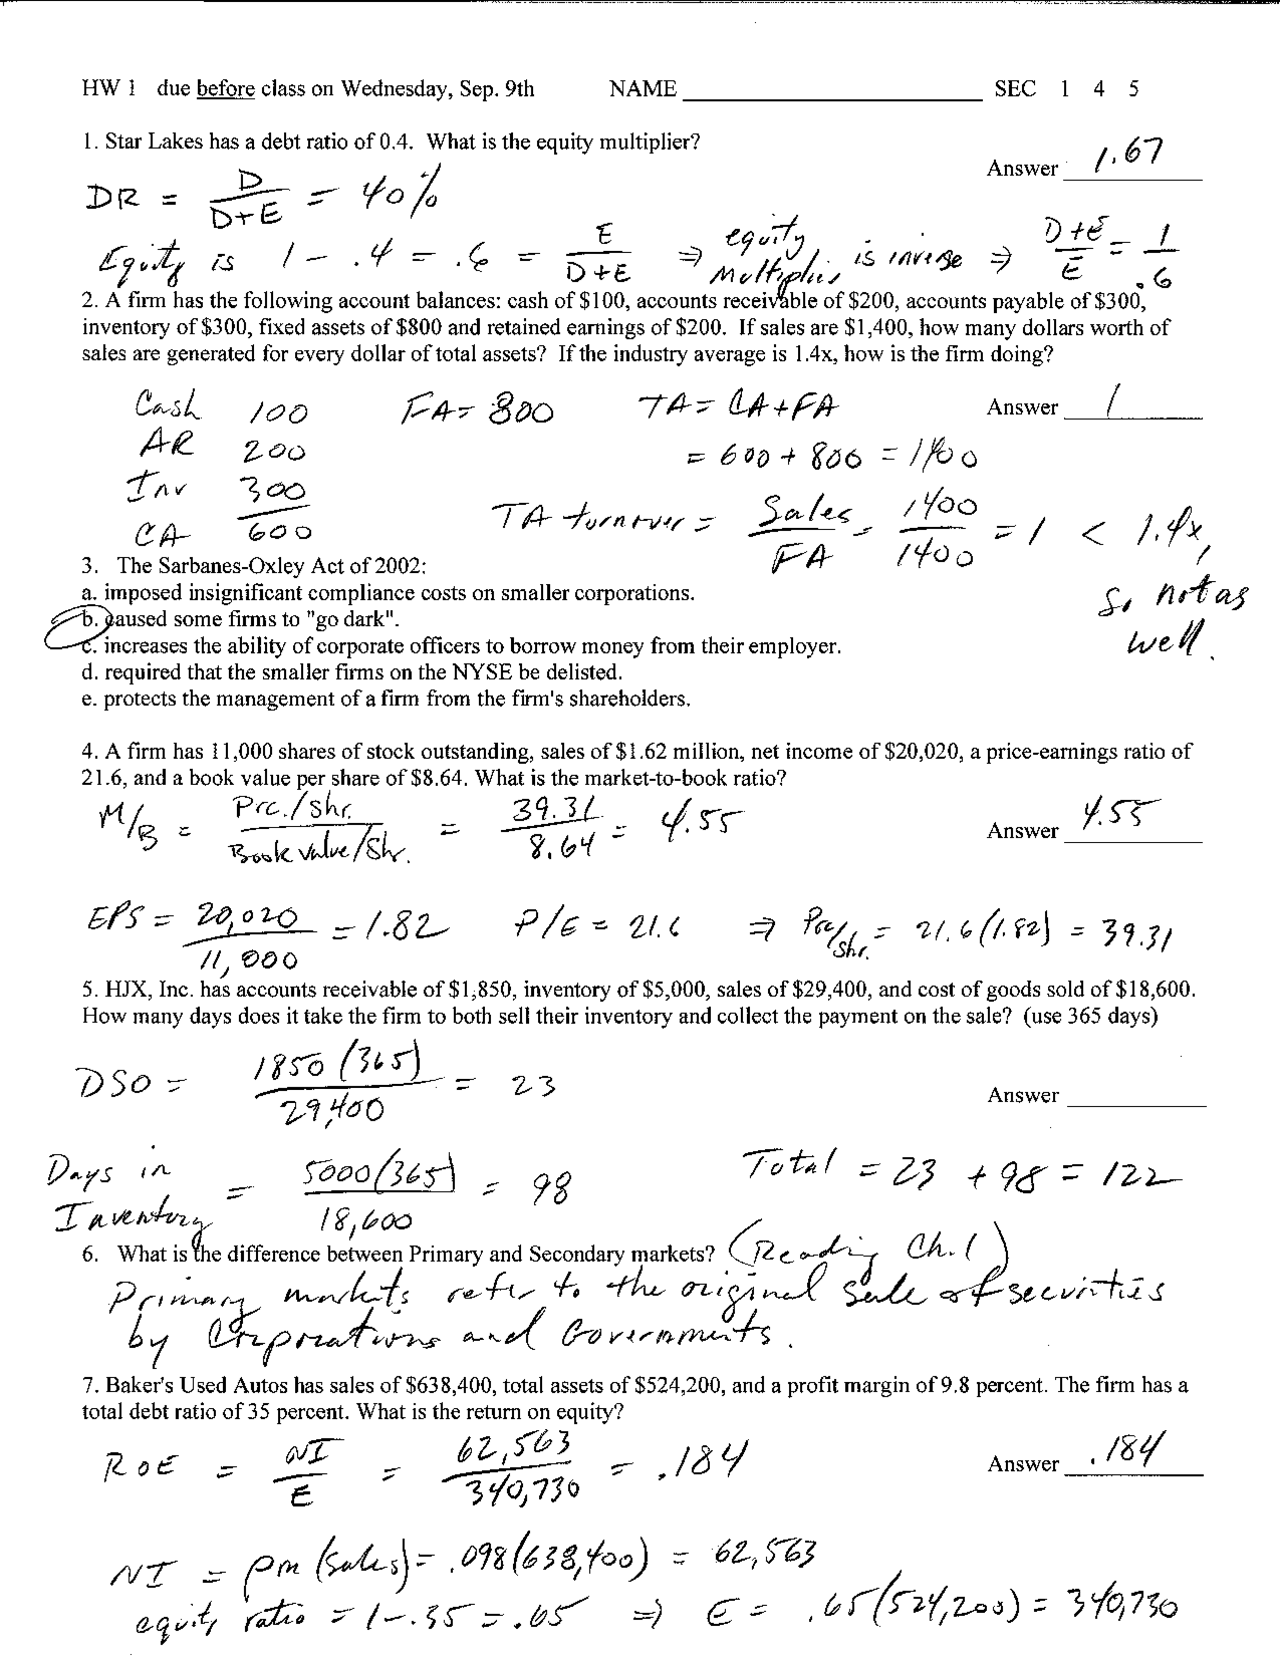 HW 1 due before class on Wednesday, Sep. 9th NAME ____________ SEC 1 4 5
1. Star Lakes has a debt ratio of 0.4. What is the equity multiplier?
Answer 1.67
DR = D / D+E = 40%
Equity is 1 - .4 = .6 = E / D+E ⇒ equity Multiplier is inverse ⇒ D+E / E = 1 / .6
2. A firm has the following account balances: cash of $100, accounts receivable of $200, accounts payable of $300,
inventory of $300, fixed assets of $800 and retained earnings of $200. If sales are $1,400, how many dollars worth of
sales are generated for every dollar of total assets? If the industry average is 1.4x, how is the firm doing?
Cash 100 FA = 800 TA = CA + FA Answer 1
AR 200 = 600 + 800 = 1400
Inv 300
CA 600 TA turnover = Sales / FA = 1400 / 1400 = 1 < 1.4x,
so not as
well.
3. The Sarbanes-Oxley Act of 2002:
a. imposed insignificant compliance costs on smaller corporations.
b. caused some firms to "go dark".
c. increases the ability of corporate officers to borrow money from their employer.
d. required that the smaller firms on the NYSE be delisted.
e. protects the management of a firm from the firm's shareholders.
4. A firm has 11,000 shares of stock outstanding, sales of $1.62 million, net income of $20,020, a price-earnings ratio of
21.6, and a book value per share of $8.64. What is the market-to-book ratio?
M/B = Prc./shr. / Book value/Shr. = 39.31 / 8.64 = 4.55 Answer 4.55
EPS = 20,020 / 11,000 = 1.82 P/E = 21.6 ⇒ Prc/shr. = 21.6(1.82) = 39.31
5. HJX, Inc. has accounts receivable of $1,850, inventory of $5,000, sales of $29,400, and cost of goods sold of $18,600.
How many days does it take the firm to both sell their inventory and collect the payment on the sale? (use 365 days)
DSO = 1850 (365) / 29,400 = 23 Answer ____________
Days in Inventory = 5000(365) / 18,600 = 98 Total = 23 + 98 = 122
6. What is the difference between Primary and Secondary markets? (Reading Ch.1)
Primary markets refer to the original sale of securities
by Corporations and Governments.
7. Baker's Used Autos has sales of $638,400, total assets of $524,200, and a profit margin of 9.8 percent. The firm has a
total debt ratio of 35 percent. What is the return on equity?
ROE = NI / E = 62,563 / 340,730 = .184 Answer .184
NI = pm (sales) = .098(638,400) = 62,563
equity ratio = 1 - .35 = .65 ⇒ E = .65(524,200) = 340,730